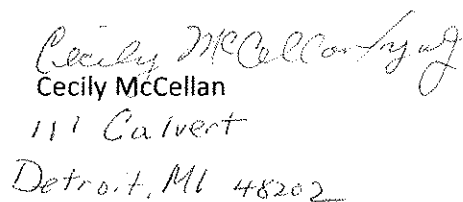 Cecily McCellan
Cecily McCellan
111 Calvert
Detroit, MI 48202